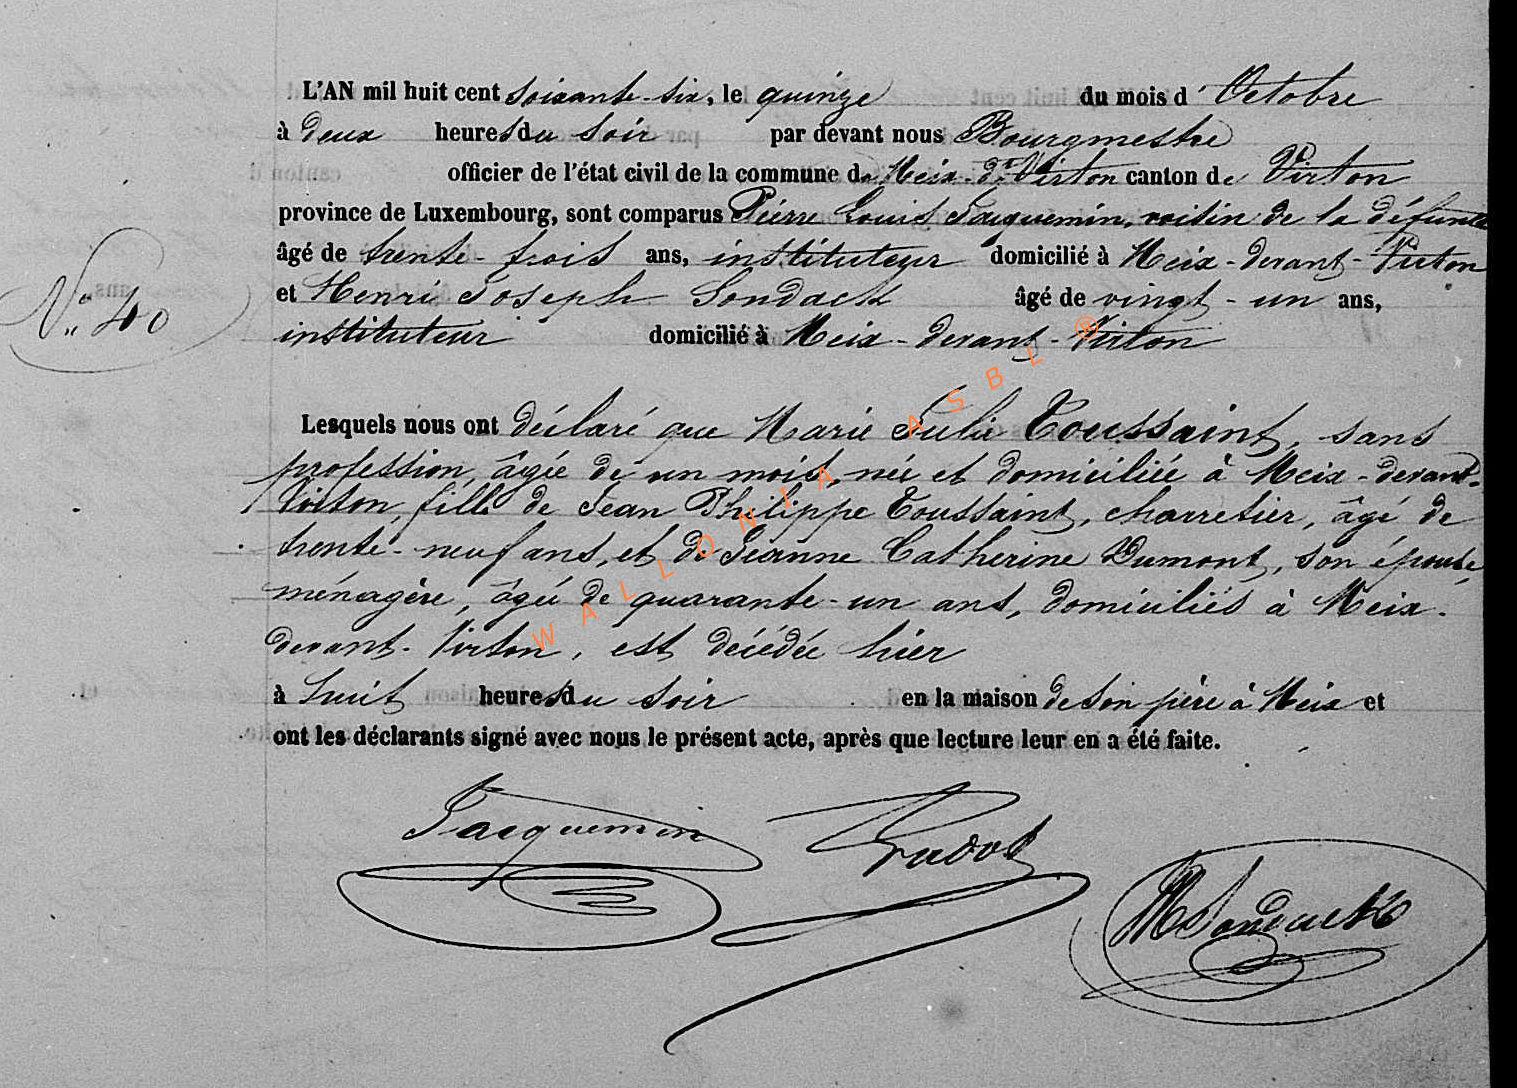 L'AN mil huit cent soixante-six, le quinze du mois d'Octobre
à deux heures du soir par devant nous Bourgmestre
officier de l'état civil de la commune de Meix-dt-Virton canton de Virton
province de Luxembourg, sont comparus Pierre Louis Jacquemin, voisin de la défunte
âgé de trente-trois ans, instituteur domicilié à Meix-devant-Virton
et Henri Joseph Sondack âgé de vingt-un ans,
N° 40
instituteur domicilié à Meix-devant-Virton
Lesquels nous ont déclaré que Marie Julie Toussaint, sans
profession, âgée de un mois, née et domiciliée à Meix-devant-
Virton, fille de Jean Philippe Toussaint, charretier, âgé de
trente-neuf ans, et de Jeanne Catherine Dumont, son épouse,
ménagère, âgée de quarante-un ans, domiciliés à Meix-
devant-Virton, est décédée hier
à huit heures du soir en la maison de son père à Meix et
ont les déclarants signé avec nous le présent acte, après que lecture leur en a été faite.
Jacquemin
Sondack
WALLONIA ASBL ®